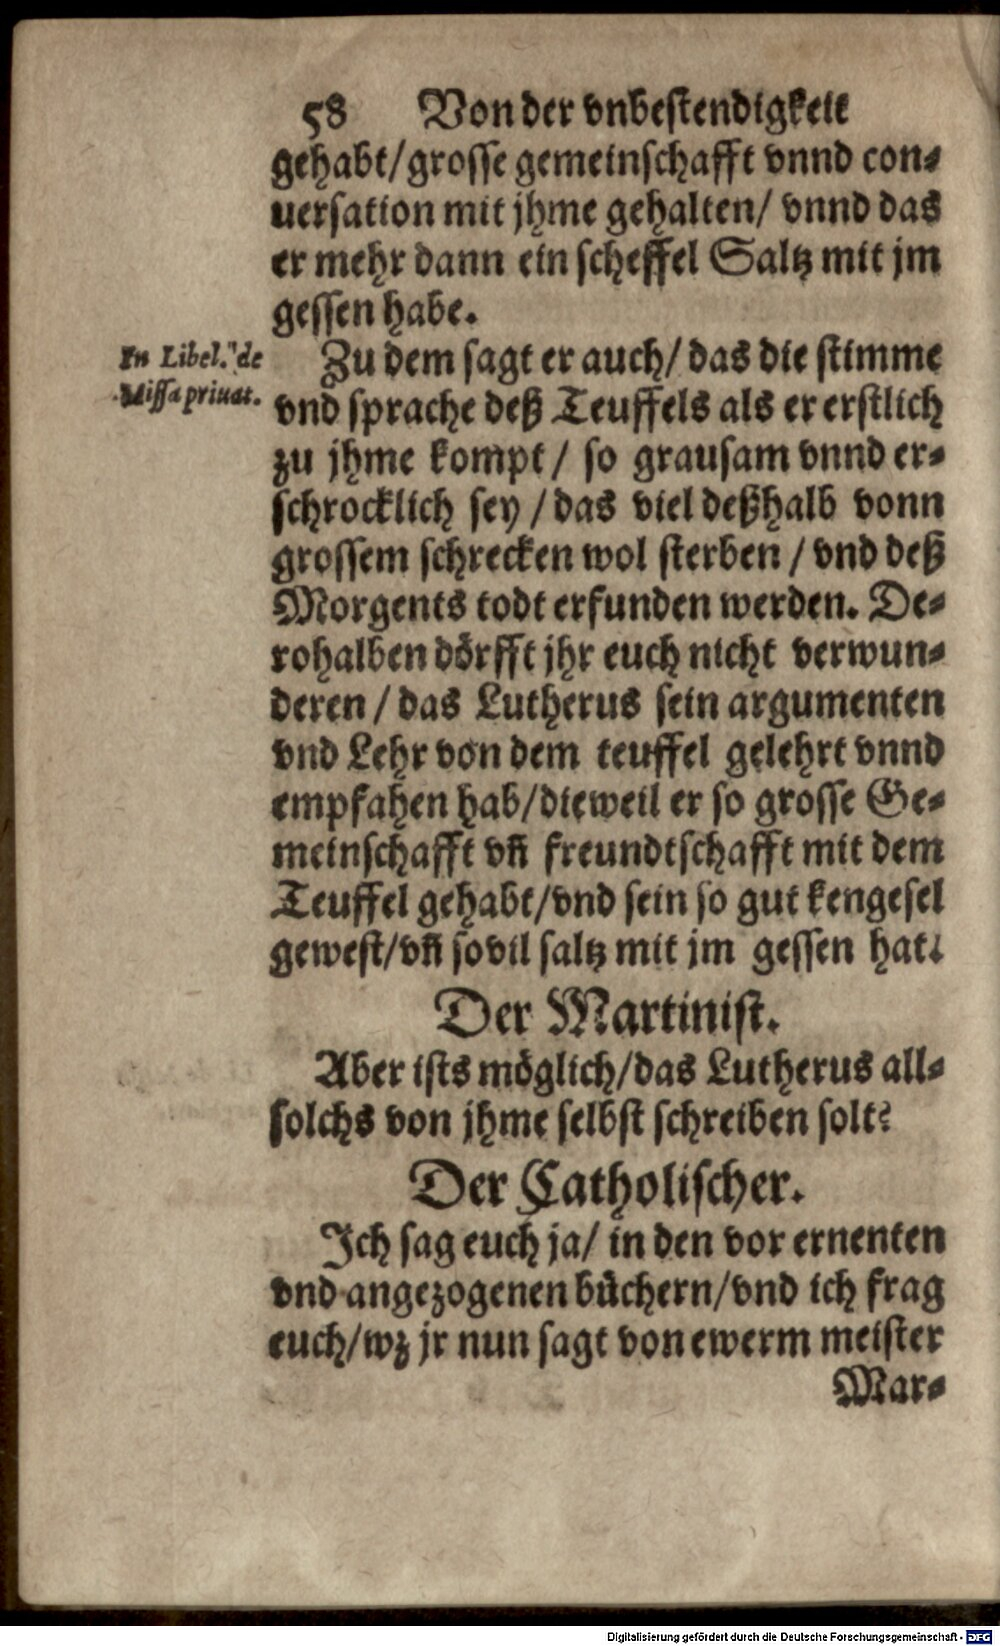 58 Von der vnbestendigkeit
gehabt/grosse gemeinschafft vnnd con-
uersation mit jhme gehalten/ vnnd das
er mehr dann ein scheffel Saltz mit jm
gessen habe.
In Libel. de
Missa priuat.
Zu dem sagt er auch/ das die stimme
vnd sprache deß Teuffels als er erstlich
zu jhme kompt / so grausam vnnd er-
schrocklich sey / das viel deßhalb vonn
grossem schrecken wol sterben / vnd deß
Morgents todt erfunden werden. De-
rohalben dörfft jhr euch nicht verwun-
deren / das Lutherus sein argumenten
vnd Lehr von dem teuffel gelehrt vnnd
empfahen hab/dieweil er so grosse Ge-
meinschafft vñ freundtschafft mit dem
Teuffel gehabt/vnd sein so gut kengesel
gewest/vñ sovil saltz mit jm gessen hat.
Der Martinist.
Aber ists möglich/das Lutherus all-
solchs von jhme selbst schreiben solt?
Der Catholischer.
Ich sag euch ja/ in den vor ernenten
vnd angezogenen büchern/vnd ich frag
euch/wz jr nun sagt von ewerm meister
Mar-
Digitalisierung gefördert durch die Deutsche Forschungsgemeinschaft - DFG